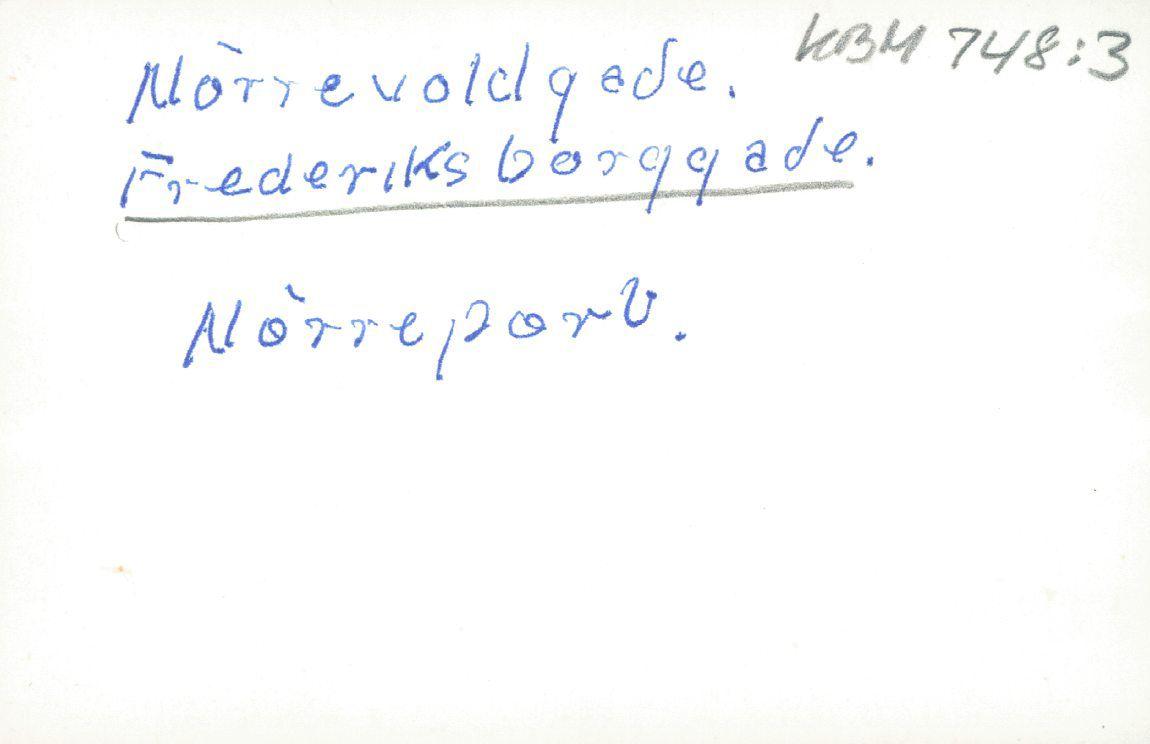 KBM 748:3
Nòrrevoldgade.
Frederiksborggade.
Nòrreport.